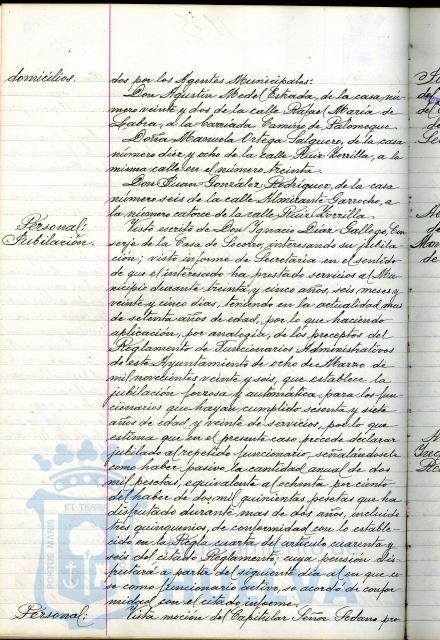 domicilios.
dos por los Agentes Municipales:
Don Agustín Medel Estrada, de la casa nú-
mero veinte y dos de la calle Rafael María de
Labra, a la barriada Camino de Palomeque.
Doña Manuela Ortega Salguero, de la casa
número diez y ocho de la calle Ruiz Zorrilla, a la
misma calle en el número treinta.
Don Juan González Rodríguez, de la casa
número seis de la calle Almirante Garrocho, a
la número catorce de la calle Ruiz Zorrilla.
Personal:
Jubilación.
Visto escrito de Don Ignacio Díaz Gallego, Con-
serje de la Casa de Socorro, interesando su jubila-
ción; visto informe de Secretaría en el sentido
de que el interesado ha prestado servicios al Mu-
nicipio durante treinta y cinco años, seis meses y
veinte y cinco días, teniendo en la actualidad mas
de setenta años de edad, por lo que haciendo
aplicación, por analogía, de los preceptos del
Reglamento de Funcionarios Administrativos
de este Ayuntamiento de ocho de Marzo de
mil novecientos veinte y seis, que establece la
jubilación forzosa y automática, para los fun-
cionarios que hayan cumplido sesenta y siete
años de edad y veinte de servicios, por lo que
estima que en el presente caso procede declarar
jubilado al repetido funcionario, señalándosele
como haber pasivo la cantidad anual de dos
mil pesetas, equivalente al ochenta por ciento
del haber de dos mil quinientas pesetas que ha
disfrutado durante mas de dos años, incluido
tres quinquenios, de conformidad con lo estable-
cido en la Regla cuarta del artículo cuarenta y
seis del citado Reglamento; cuya pensión dis-
frutará a partir del siguiente día al en que ce-
se como funcionario activo, se acordó de confor-
midad con el citado informe.
Personal:
Vista moción del Capitular Señor Sedano pro-
PORTUS MARIS
ET TERRA